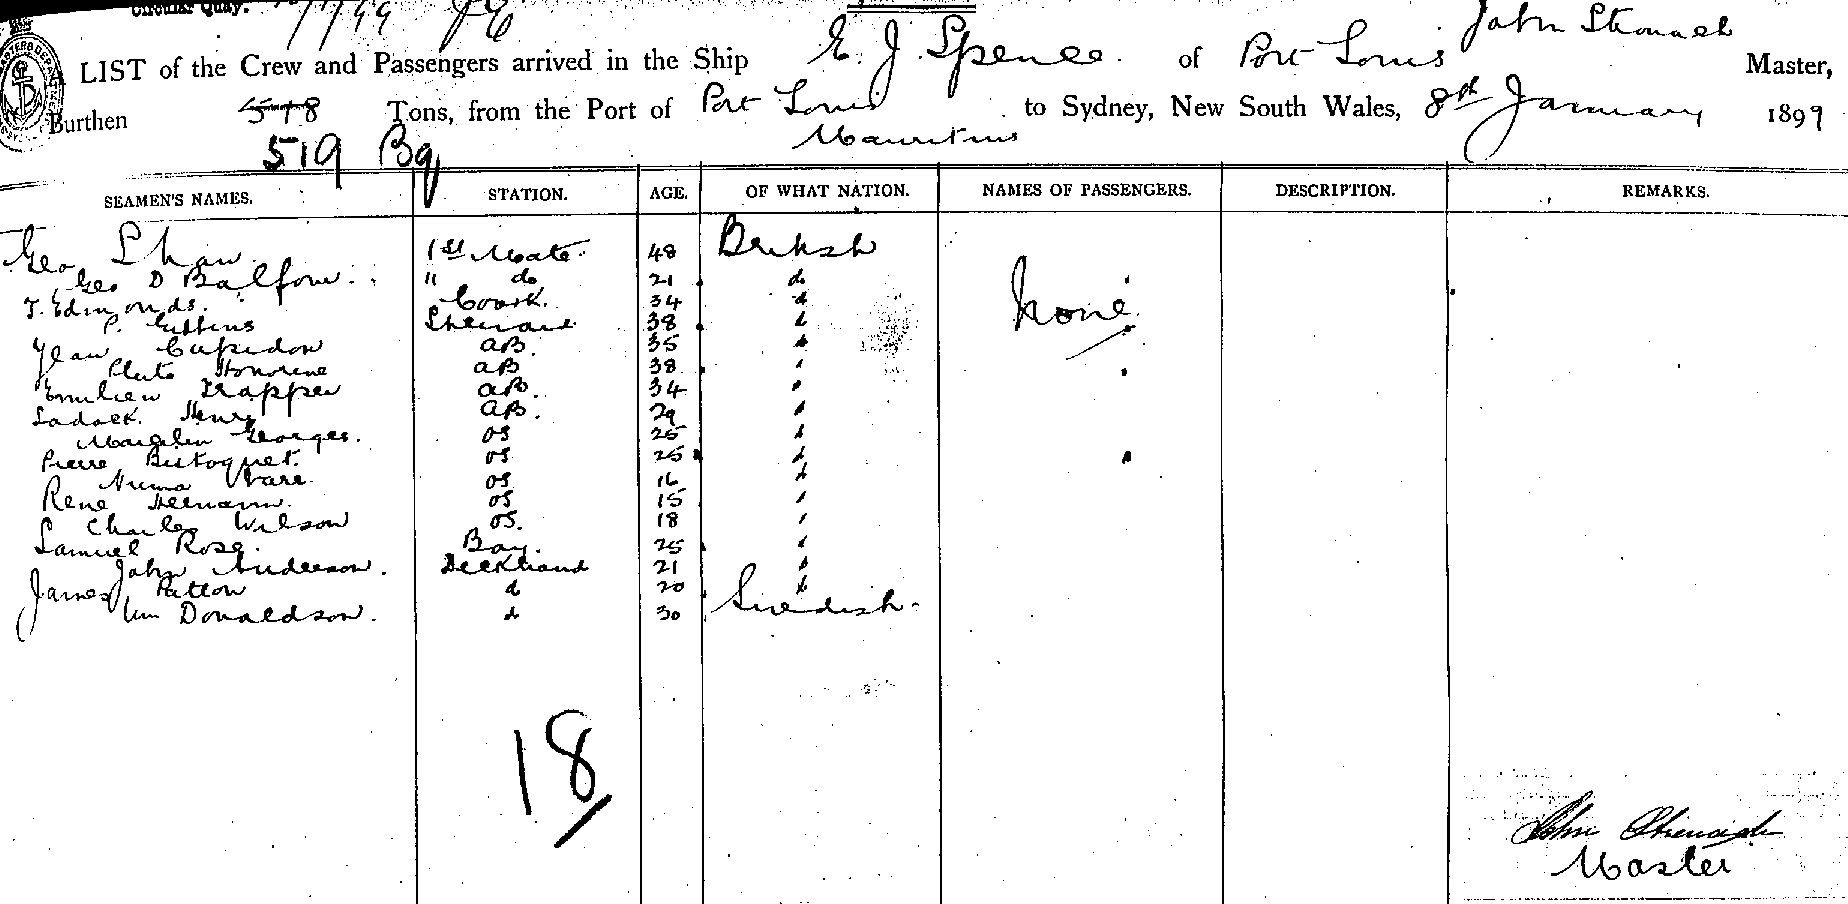 Circular Quay.
John Stronach
LIST of the Crew and Passengers arrived in the Ship E. J. Spence of Port Louis Master,
Burthen 518 Tons, from the Port of Port Louis to Sydney, New South Wales, 8th January 1899
Mauritius
519 Bq
SEAMEN'S NAMES. STATION. AGE. OF WHAT NATION. NAMES OF PASSENGERS. DESCRIPTION. REMARKS.
Geo Shaw 1st Mate. 48 British
Geo D Balfour " do 21 do
T. Edmonds. Cook. 34 d None
P. Gibbins Steward 38 d
Jean Cupidon AB. 35
Honorine AB 38
Emilien Trapper AB. 34
Sadock Henry AB. 29
Georges. OS 25
Pierre Bistoquet. OS 25
Numa OS 16
Rene OS 15
Charles Wilson OS. 18
Samuel Rose. Boy. 25
John Anderson. Deckhand 21
James Patton d 20
Wm Donaldson. d 30 Swedish.
18
John Stronach
Master